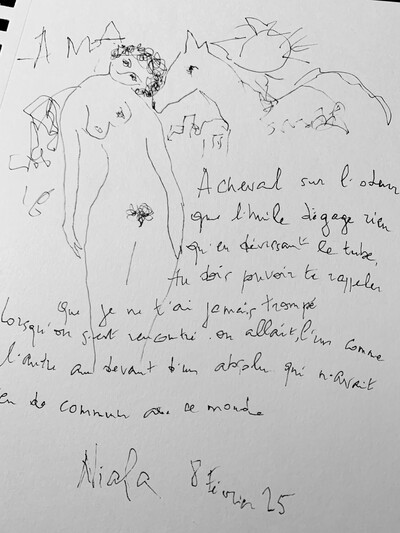 A MA
A cheval sur l'odeur
que l'huile dégage rien
qu'en dévissant le tube,
tu dois pouvoir te rappeler
que je ne t'ai jamais trompé
Lorsqu'on s'est rencontré on allait, l'un comme
l'autre au devant d'un absolu qui n'avait
en de commun avec ce monde
Niala 8 février 25